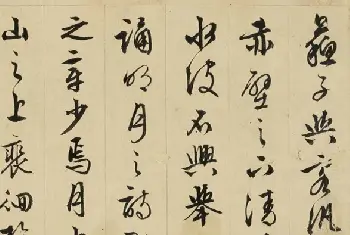 蘇子與客泛
赤壁之下清
水波不興舉
誦明月之詩
之章少焉月
山之上裴徊